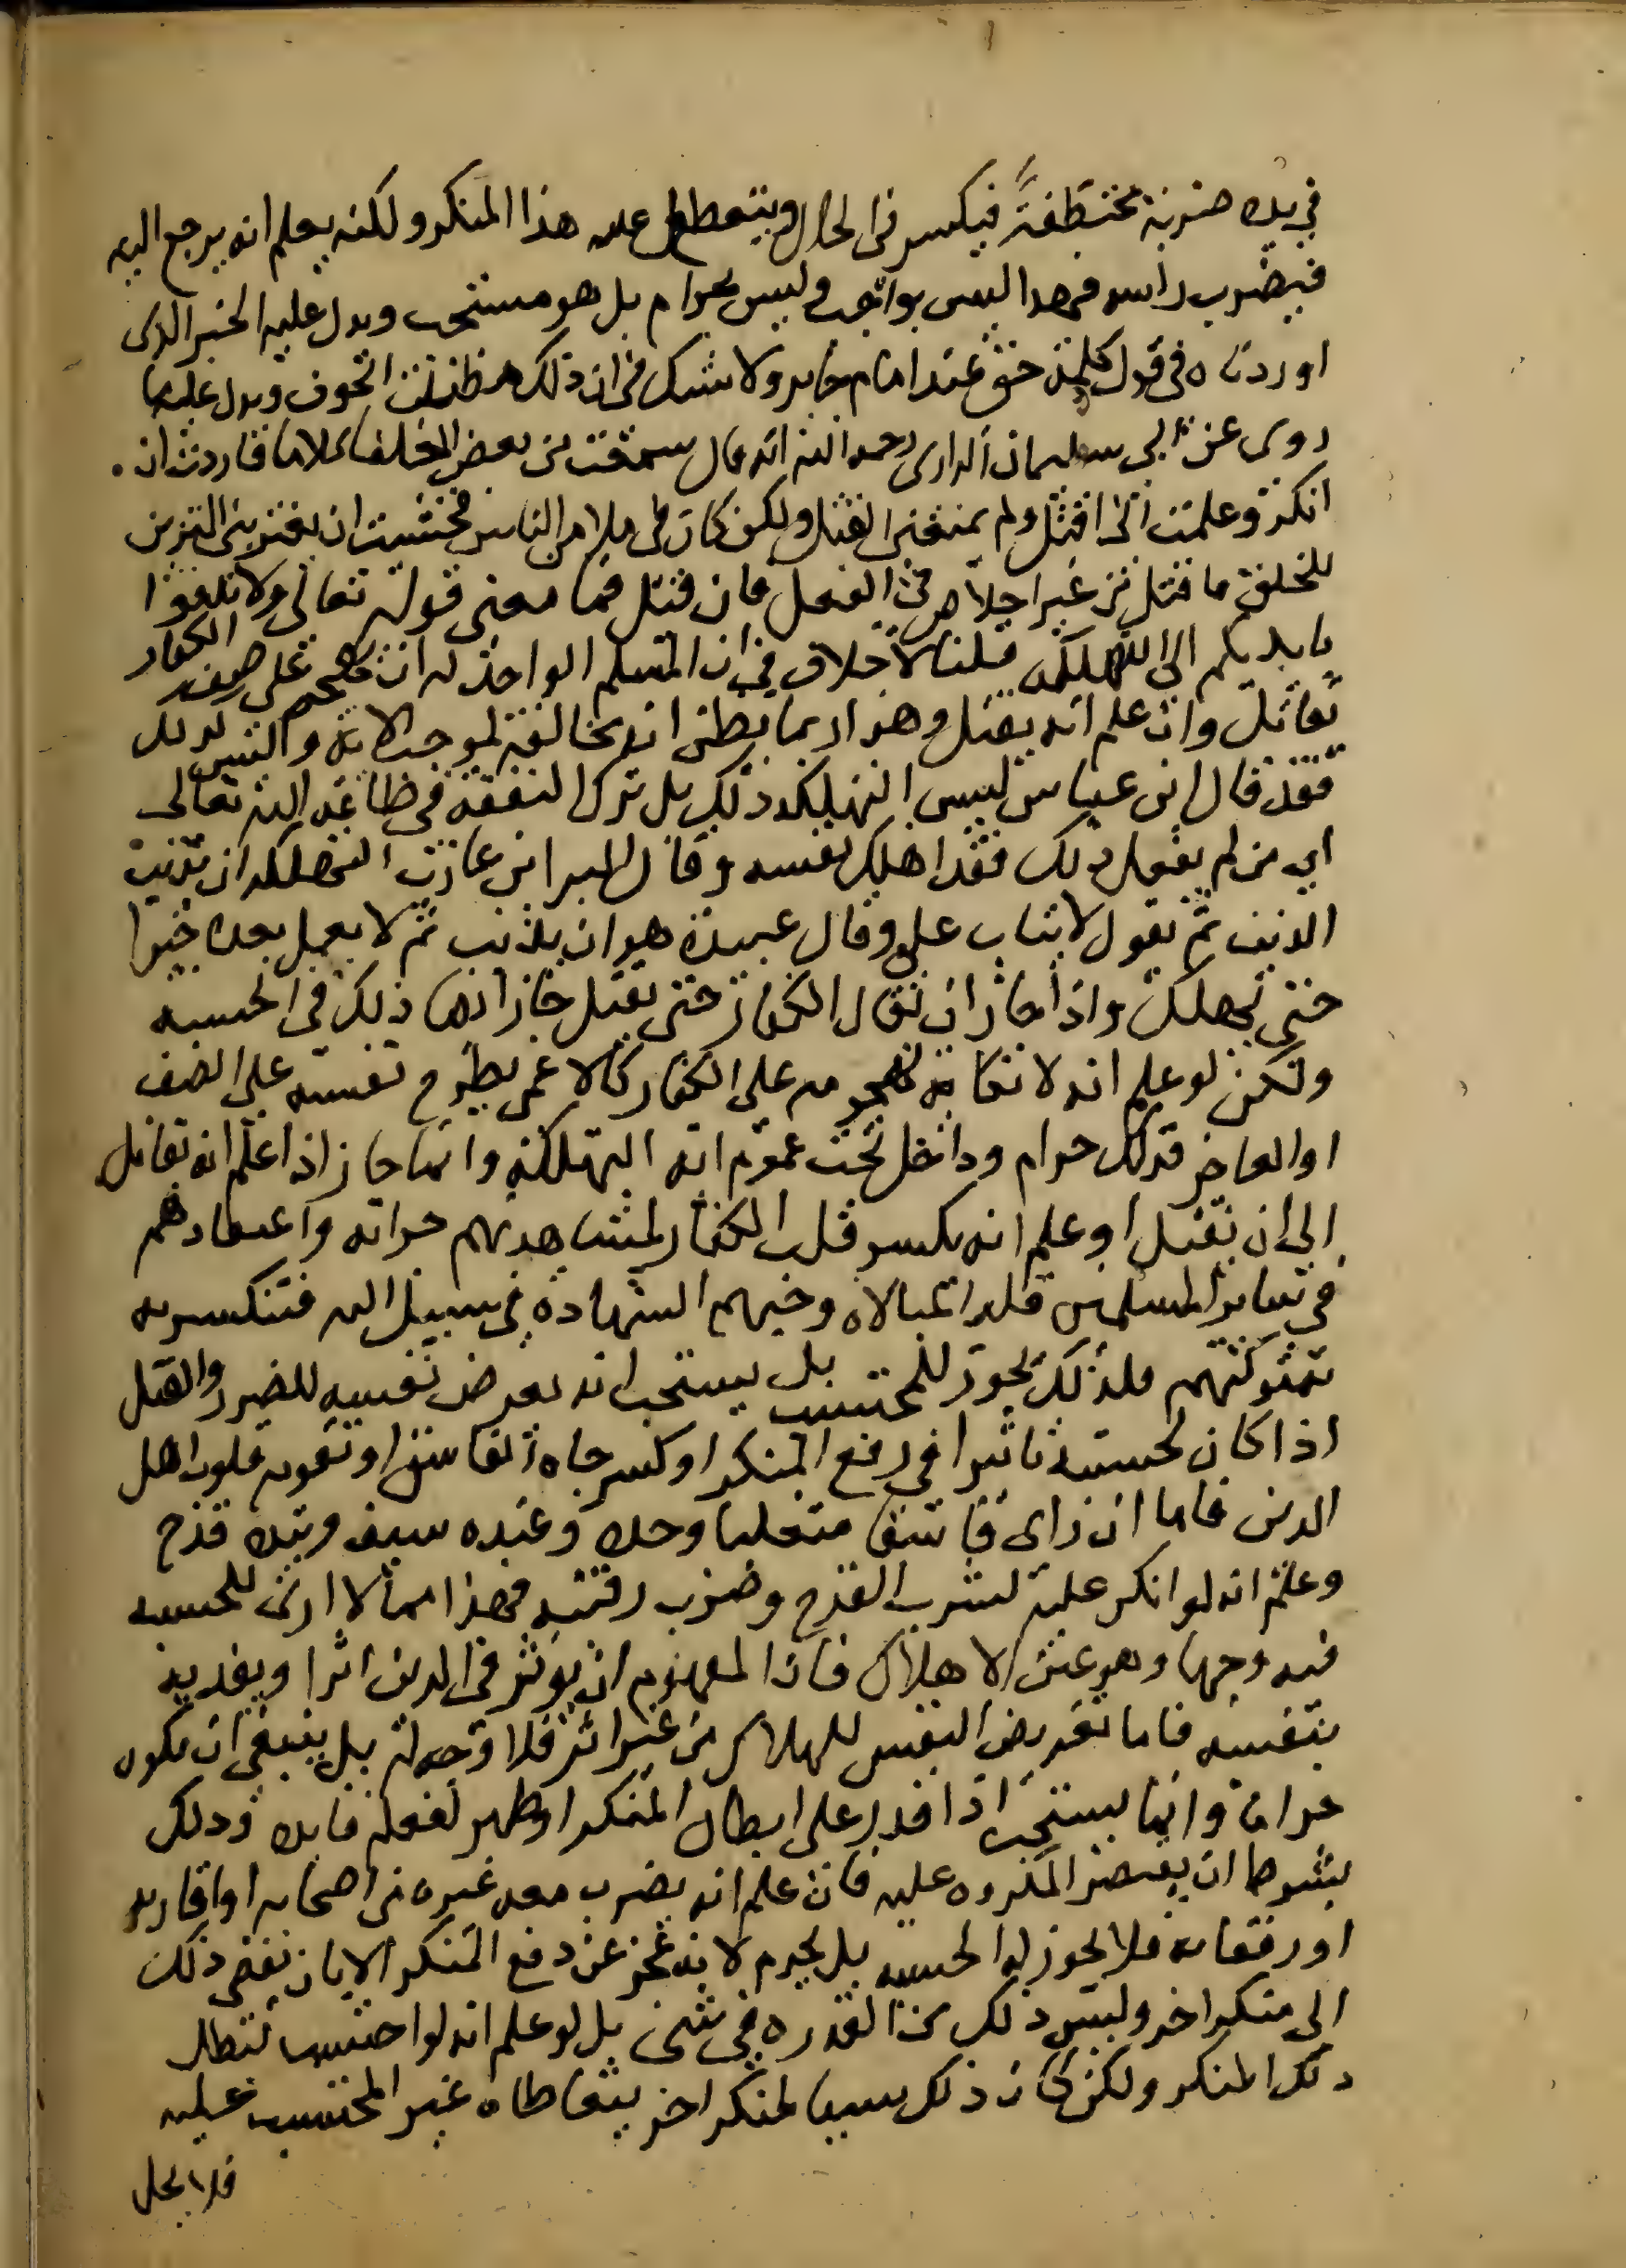 في يده ضربة مختطفة فيكسر في الحال ويتعطل عليه هذا المنكر ولكنه يعلم انه يرجع اليه
فيضرب راسه فهذا ليس بواجب وليس بحرام بل هو مستحب ويدل عليه الخبر الذي
اوردناه في قول كلمة حق عند امام جاير ولا شك في ان ذلك مظنة الخوف ويدل عليه ما
روى عن ابي سليمان الدارى رحمه الله انه قال سمعت من بعض الخلفا كلاما فاردت ان
انكر وعلمت انى اقتل ولم يمنعنى القتل ولكن كان في ملا من الناس فخشيت ان يعتريني التزين
للخلق فاقتل من غير اخلاص في الفعل فان قيل فما معنى قوله تعالى ولا تلقوا
بايديكم الى التهلكة قلنا لا خلاف في ان المسلم الواحد له ان يهجم على صف الكفار
يقاتل وان علم انه يقتل وهذا ربما يظن انه مخالف لموجب الاية وليس كذلك
فقد قال ابن عباس ليس التهلكة ذلك بل ترك النفقة في طاعة الله تعالى
اي من لم يفعل ذلك فقد اهلك نفسه وقال البرا بن عازب التهلكة ان يذنب
الذنب ثم يقول لا يتاب على وقال عبيدة هو ان يذنب ثم لا يعمل بعده خيرا
حتى يهلك واذا جاز ان يقاتل الكفار حتى يقتل جاز ايضا ذلك في الحسبه
ولكن لو علم انه لا نكاية لهجومه على الكفار كالاعمى يطرح نفسه على الصف
او العاجز فذلك حرام وداخل تحت عموم اية التهلكة وانما جاز اذا علم انه يقاتل
الى ان يقتل او علم انه يكسر قلب الكفار لمشاهدتهم جراته واعتقادهم
في ساير المسلمين قلة المبالاه وحبهم الشهادة في سبيل الله فتنكسر به
شوكتهم فلذلك يجوز للمحتسب بل يستحب انه يعرض نفسه للضرر والقتل
اذا كان لحسبته تاثيرا في رفع المنكر او كسر جاه الفاسق او تقويه قلوب اهل
الدين فاما ان راى فاسقا متغلبا وحده وعنده سيف وبيده قدح
وعلم انه لو انكر عليه لشرب القدح وضرب رقبته فهذا مما لا ارى للحسبه
فيه وجها وهو عين الاهلاك فان المفهوم ان يوثر في الدين اثرا ويفديه
بنفسه فاما تعريض النفس للهلاك من غير اثر فلا وجه له بل ينبغي ان يكون
حراما وانما يستحب اذا قدر على ابطال المنكر او ظهر لفعله فايده وذلك
بشرط ان يقتصر المكروه عليه فان علم انه يضرب معه غيره من اصحابه او اقاربه
او رفقايه فلا يجوز له الحسبه بل يحرم لانه عجز عن دفع المنكر الا بان يفضى ذلك
الى منكر اخر وليس ذلك من القدره في شى بل لو علم انه لو احتسب لبطل
ذلك المنكر ولكن كان ذلك سببا لمنكر اخر يتعاطاه غير المحتسب عليه
فلا يحل